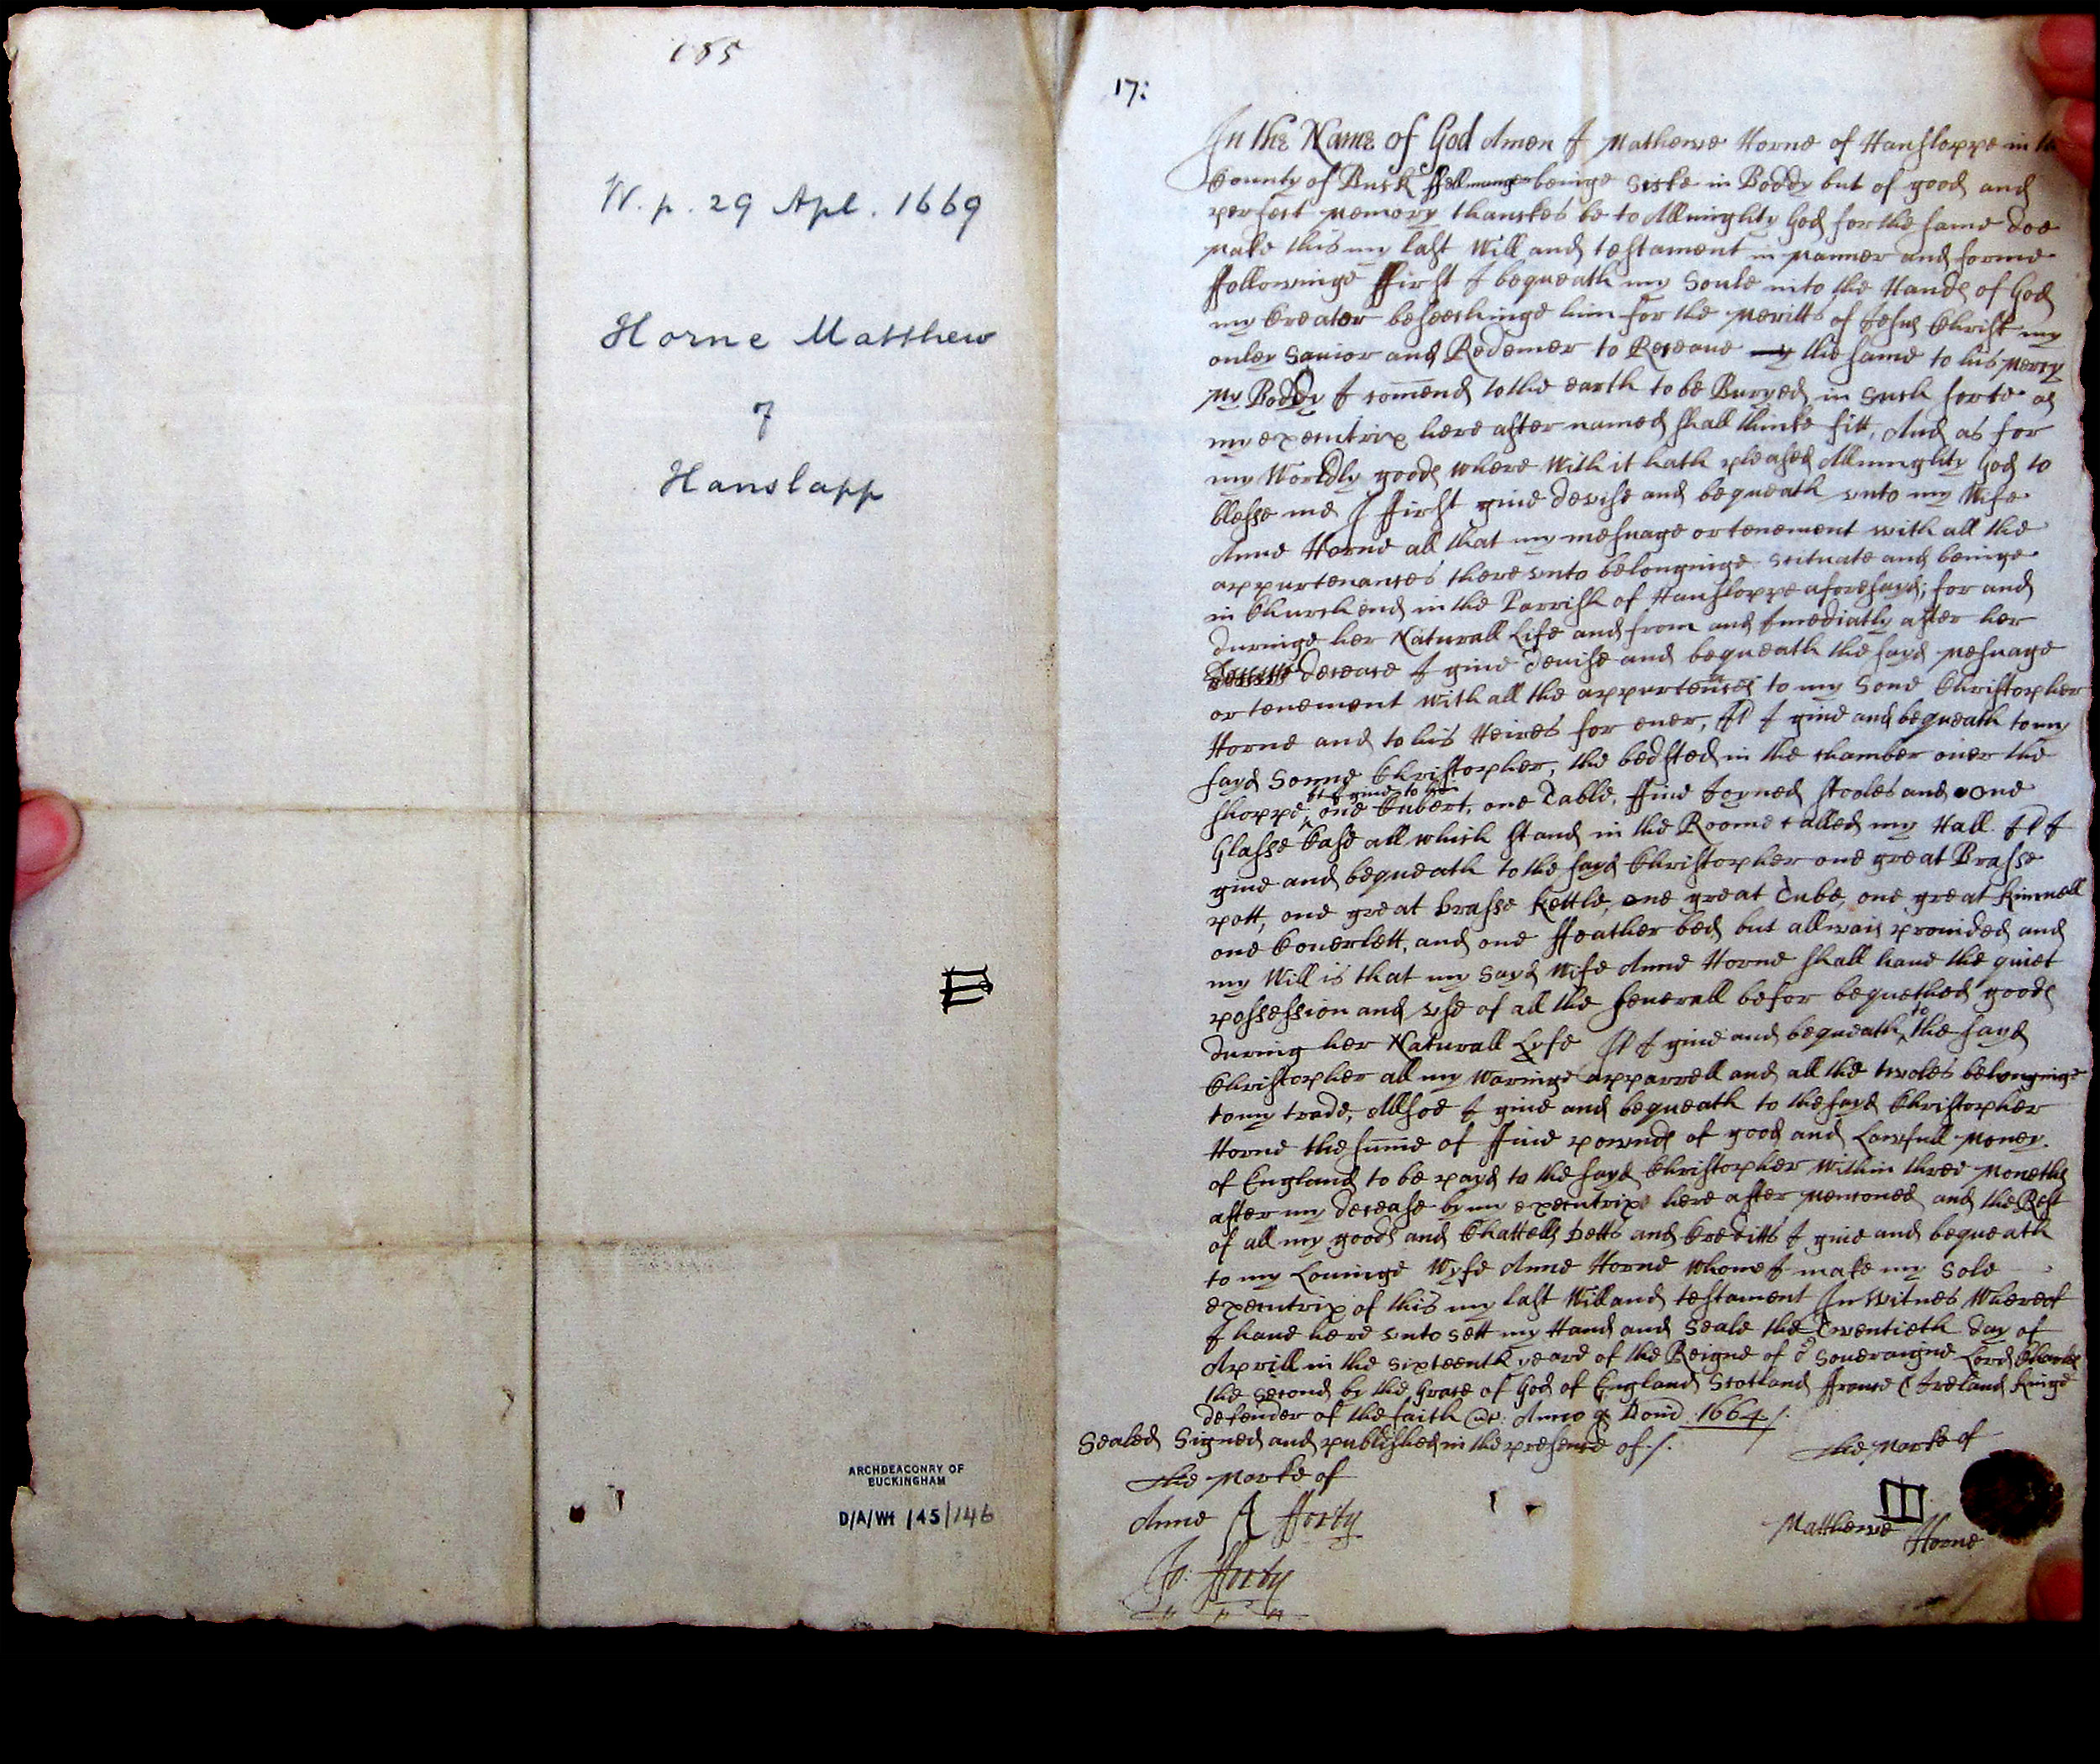 185
W. p. 29 Apl. 1669
Horne Matthew
of
Hanslapp
ARCHDEACONRY OF
BUCKINGHAM
D/A/Wf /45/146
17:
In the Name of God Amen I Mathewe Horne of Hansloppe in the
County of Buck ffellmonger beinge sicke in Boddy but of good and
perfect memory thanckes be to Allmighty God for the same doe
make this my last Will and testament in manner and forme
ffollowinge ffirst I bequeath my Soule into the Hands of God
my Creator beseechinge him for the meritts of Jesus Christ my
onley Savior and Redemer to Receave my the same to his mercy
my Boddy I comend to the earth to be Buryed in such sorte as
my executrix here after named shall thinke fitt, And as for
my Worldly goods where With it hath pleased Allmighty God to
blesse me I ffirst give devise and bequeath unto my Wife
Anne Horne all that my mesuage or tenement with all the
appurtenances there unto belonginge scituate and beinge
in Church end in the Parrish of Hansloppe aforesayd, for and
duringe her Naturall Life and from and Imediatly after her
decease I give devise and bequeath the sayd mesuage
or tenement With all the appurtences to my Sone Christopher
Horne and to his Heires for ever, It I give and bequeath to my
sayd Sonne Christopher, the bedsted in the chamber over the
shoppe, It I give to him one Cubert, one Table, ffive Joyned stooles and one
Glasse Case all which stand in the Roome called my Hall It I
give and bequeath to the sayd Christopher one great Brasse
pott, one great brasse kettle, one great Tube, one great kimnell
one Coverlett, and one ffeather bed, but allwais provided and
my Will is that my sayd Wife Anne Horne shall have the quiet
possession and use of all the severall befor bequethed goods
during her Naturall Lyfe It I give and bequeath to the sayd
Christopher all my Waringe apparrell and all the twoles belonginge
to my trade, Allsoe I give and bequeath to the sayd Christopher
Horne the sume of ffive pownds of good and Lawfull money
of England to be payd to the sayd Christopher Within three moneths
after my decease by my executrix here after mencioned and the Rest
of all my goods and Chattells Detts and Creditts I give and bequeath
to my Lovinge Wyfe Anne Horne whome I make my sole
executrix of this my last Will and testament In Witnes Whereof
I have here unto sett my Hand and Seale the Twentieth day of
Aprill in the sixteenth yeare of the Reigne of or Soveraigne Lord Charles
the Second by the Grace of God of England Scotland ffrance & Ireland kinge
defender of the faith &c: Annoq Domi 1664 /.
Sealed Signed and published in the presence of /.
the marke of
Anne A fforty
Jo: fforty
the marke of
Matthewe Horne